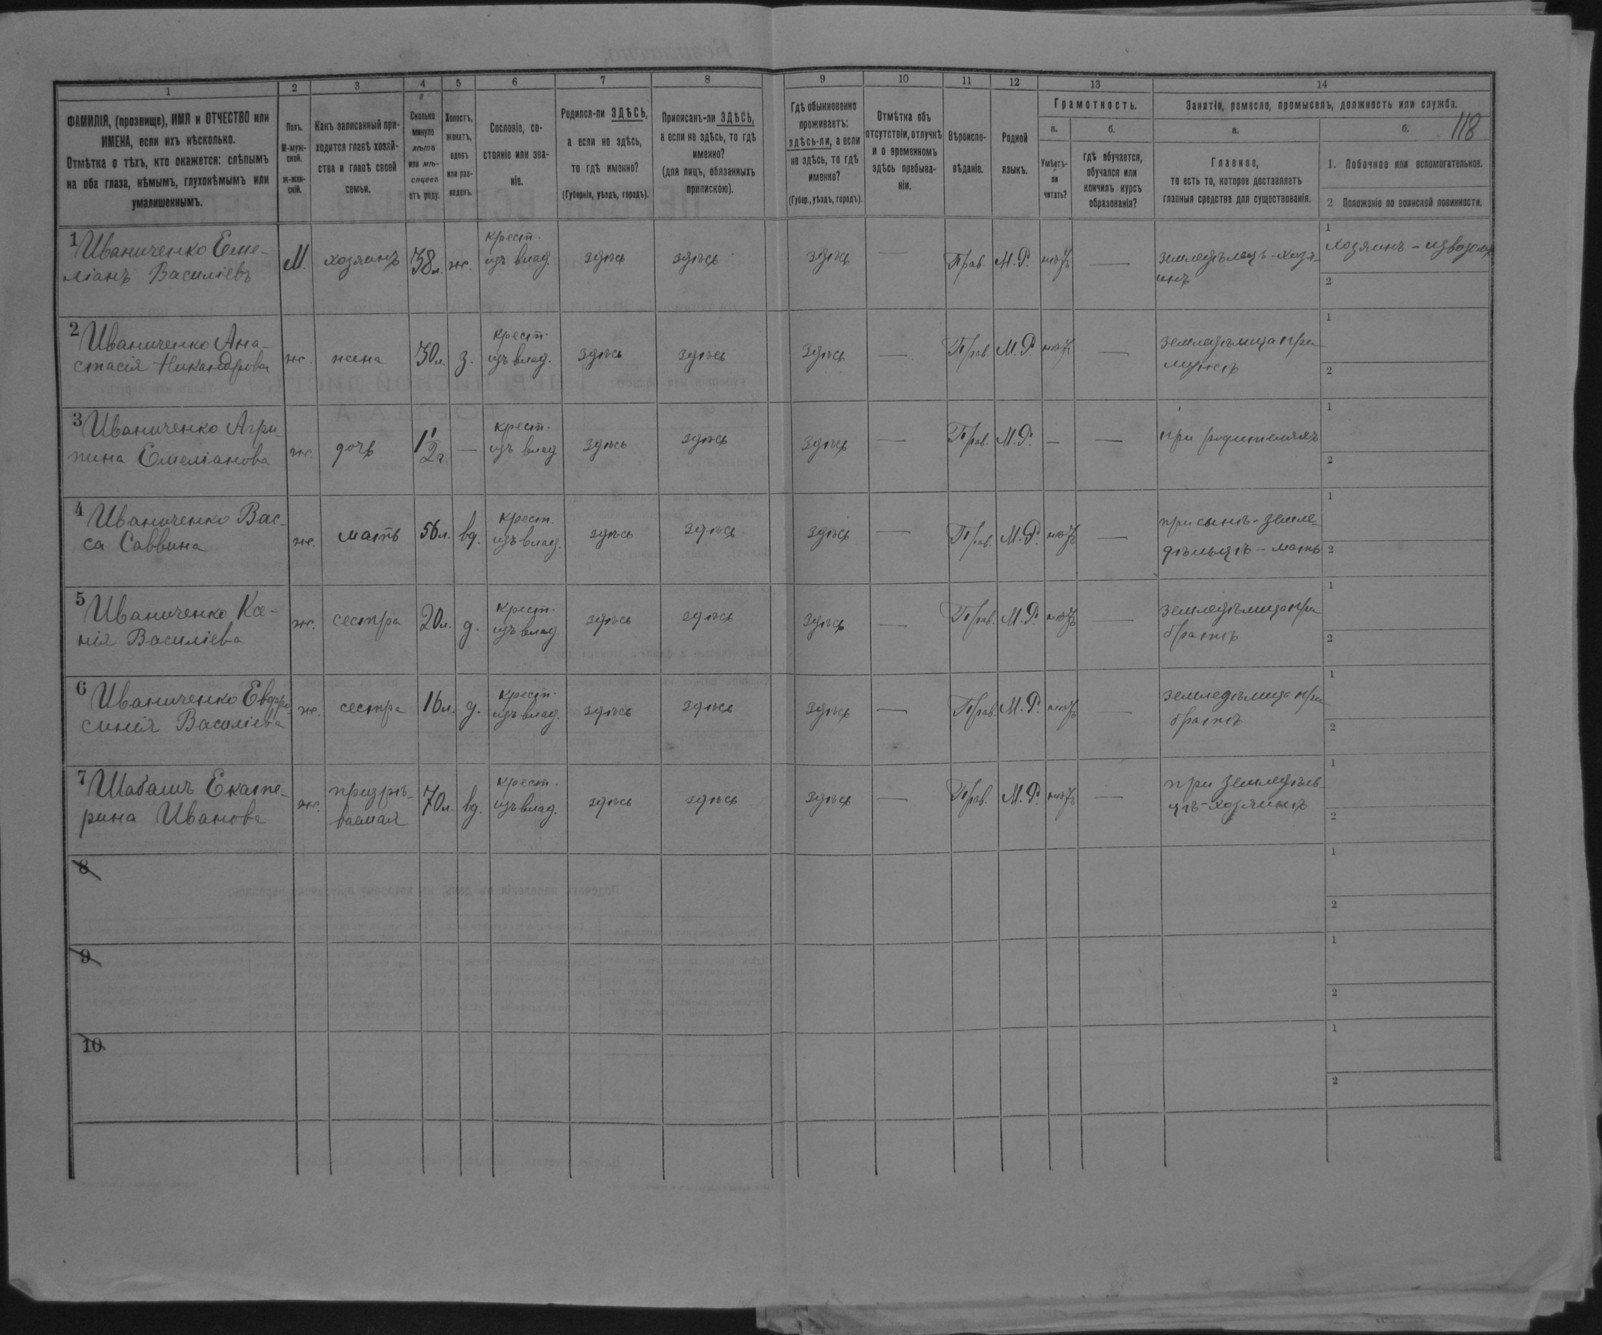 118
1 2 3 4 5 6 7 8 9 10 11 12 13 14
ФАМИЛІЯ, (прозвище), ИМЯ и ОТЧЕСТВО или
ИМЕНА, если ихъ нѣсколько.
Отмѣтка о тѣхъ, кто окажется: слѣпымъ
на оба глаза, нѣмымъ, глухонѣмымъ или
умалишеннымъ.
Полъ.
М-муж-
ской.
ж-жен-
скій.
Какъ записанный при-
ходится главѣ хозяй-
ства и главѣ своей
семьи.
Сколько
минуло
лѣтъ
или мѣ-
сяцевъ
отъ роду.
Холостъ,
женатъ,
вдовъ
или раз-
веденъ.
Сословіе, со-
стояніе или зва-
ніе.
Родился-ли ЗДѢСЬ,
а если не здѣсь,
то гдѣ именно?
(Губернія, уѣздъ, городъ).
Приписанъ-ли ЗДѢСЬ,
а если не здѣсь, то гдѣ
именно?
(для лицъ, обязанныхъ
припискою).
Гдѣ обыкновенно
проживаетъ:
здѣсь-ли, а если
не здѣсь, то гдѣ
именно?
(Губер., уѣздъ, городъ).
Отмѣтка объ
отсутствіи, отлучкѣ
и о временномъ
здѣсь пребыва-
ніи.
Вѣроиспо-
вѣданіе.
Родной
языкъ.
Грамотность.
а.
Умѣетъ-
ли
читать?
б.
гдѣ обучается,
обучался или
кончилъ курсъ
образованія?
Занятія, ремесло, промыселъ, должность или служба.
а.
Главное,
то есть то, которое доставляетъ
главныя средства для существованія.
б.
1. Побочное или вспомогательное.
2 Положеніе по воинской повинности.
1 Иваниченко Еме-
ліанъ Василіевъ
М.
хозяинъ
38 л.
ж.
крест.
изъ влад.
здѣсь
здѣсь
здѣсь
—
Прав.
М.Р.
нѣтъ
—
земледѣлецъ-хозя-
инъ
1 хозяинъ - извозчик
2
2 Иваниченко Ана-
стасія Никандрова
ж.
жена
30 л.
з.
крест.
изъ влад.
здѣсь
здѣсь
здѣсь
—
Прав.
М.Р.
нѣтъ
—
земледѣлица при
мужѣ
1
2
3 Иваниченко Агри-
пина Емеліанова
ж.
дочь
1 1/2 г.
—
крест.
изъ влад
здѣсь
здѣсь
здѣсь
—
Прав.
М.Р.
—
—
при родителяхъ
1
2
4 Иваниченко Вас-
са Саввина
ж.
мать
56 л.
вд.
крест.
изъ влад.
здѣсь
здѣсь
здѣсь
—
Прав.
М.Р.
нѣтъ
—
при сынѣ-земле-
дѣльцѣ - мать
1
2
5 Иваниченко Ка-
нія Василіева
ж.
сестра
20 л.
д.
крест.
изъ влад.
здѣсь
здѣсь
здѣсь
—
Прав.
М.Р.
нѣтъ
—
земледѣлица при
братѣ
1
2
6 Иваниченко Евдро
синія Василіева
ж.
сестра
16 л.
д.
крест.
изъ влад.
здѣсь
здѣсь
здѣсь
—
Прав.
М.Р.
нѣтъ
—
земледѣлица при
братѣ
1
2
7 Шабашъ Екате-
рина Иванова
ж.
призрѣ-
ваемая
70 л.
вд.
крест.
изъ влад.
здѣсь
здѣсь
здѣсь
—
Прав.
М.Р.
нѣтъ
—
при земледѣль-
цѣ-хозяинѣ
1
2
8
1
2
9
1
2
10
1
2